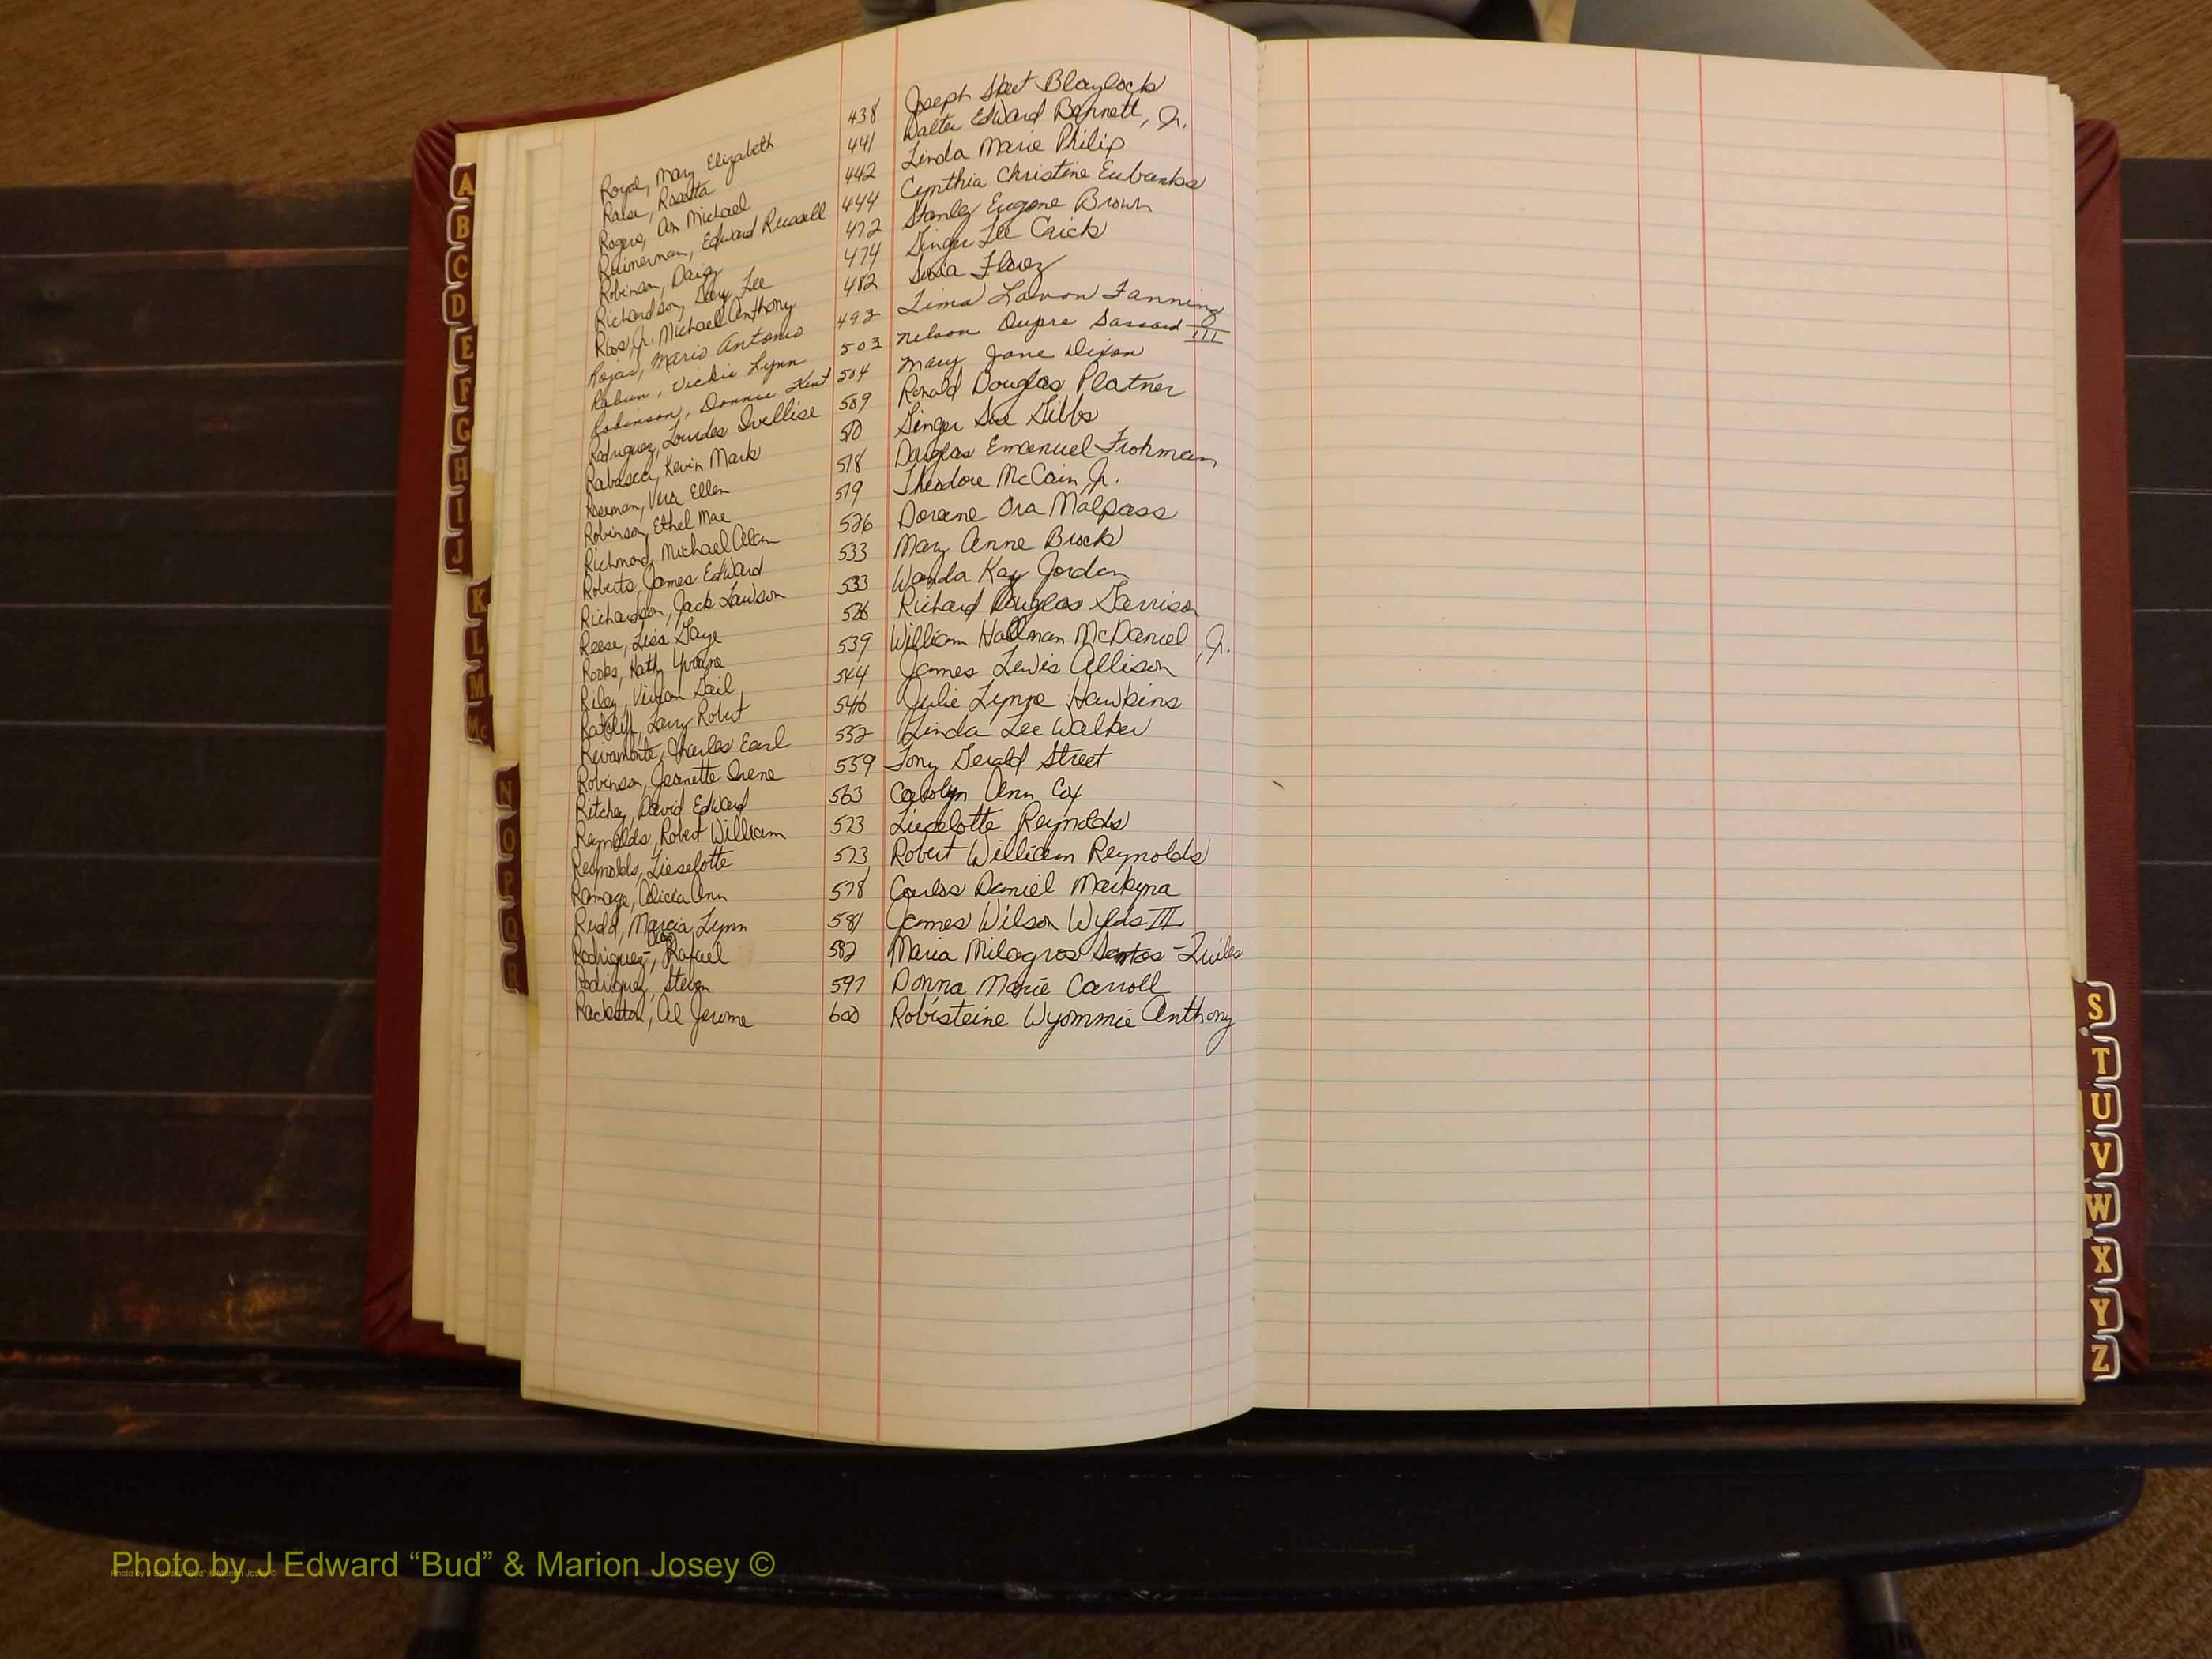 Royal, Mary Elizabeth 438 Joseph Blaylock
Rosetta 441 Walter Edward Bennett, Jr.
Rogers, Don Michael 442 Linda Marie Philip
Edward Russell 444 Cynthia Christine Eubanks
Robinson, 472 Stanley Eugene Brown
Richardson, Lee 474 Ginger Lee Crick
Rios Jr. Michael Anthony 482
Rojas, Mario Antonio 492 Lavon Fanning
Rabun, Vickie Lynn 503 Nelson Dupre III
Robinson, Donnie Kent 504 Mary Jane Dixon
Rodriguez, Lourdes 509 Ronald Douglas Platner
Kevin Mark 510 Ginger Sue Gibbs
Vera Ellen 518 Douglas Emanuel Frohman
Robinson, Ethel Mae 519 Theodore McCain, Jr.
Richmond, Michael Alan 526 Doreene Ora Malpass
Roberts, James Edward 533 Mary Anne Brock
Richardson, Jack Lawson 533 Wanda Kay Jordan
Reese, Lisa Gaye Richard Douglas Garrison
539 William Hallman McDaniel, Jr.
Riley, Vivian Gail 544 James Lewis Allison
Ratcliff, Larry Robert 546 Julie Lynne Hawkins
Charles Earl 552 Linda Lee Walker
Robinson, Jeanette Irene 559 Tony Gerald Street
Ritchey, David Edward 563 Carolyn Ann Cox
Reynolds, Robert William 573 Lieselotte Reynolds
Reynolds, Lieselotte 573 Robert William Reynolds
Ramage, Alicia Ann 578 Carlos Daniel
Rudd, Marcia Lynn 581 James Wilson Wylds III
Rodriguez-, Rafael 582 Maria Milagros Santos-
Rodriguez, Steven 597 Donna Marie Carroll
Al Jerome 600 Robisteine Wyommie Anthony
A
B
C
D
E
F
G
H
I
J
K
L
M
Mc
N
O
P
Q
R
S
T
U
V
W
X
Y
Z
Photo by J Edward “Bud” & Marion Josey ©